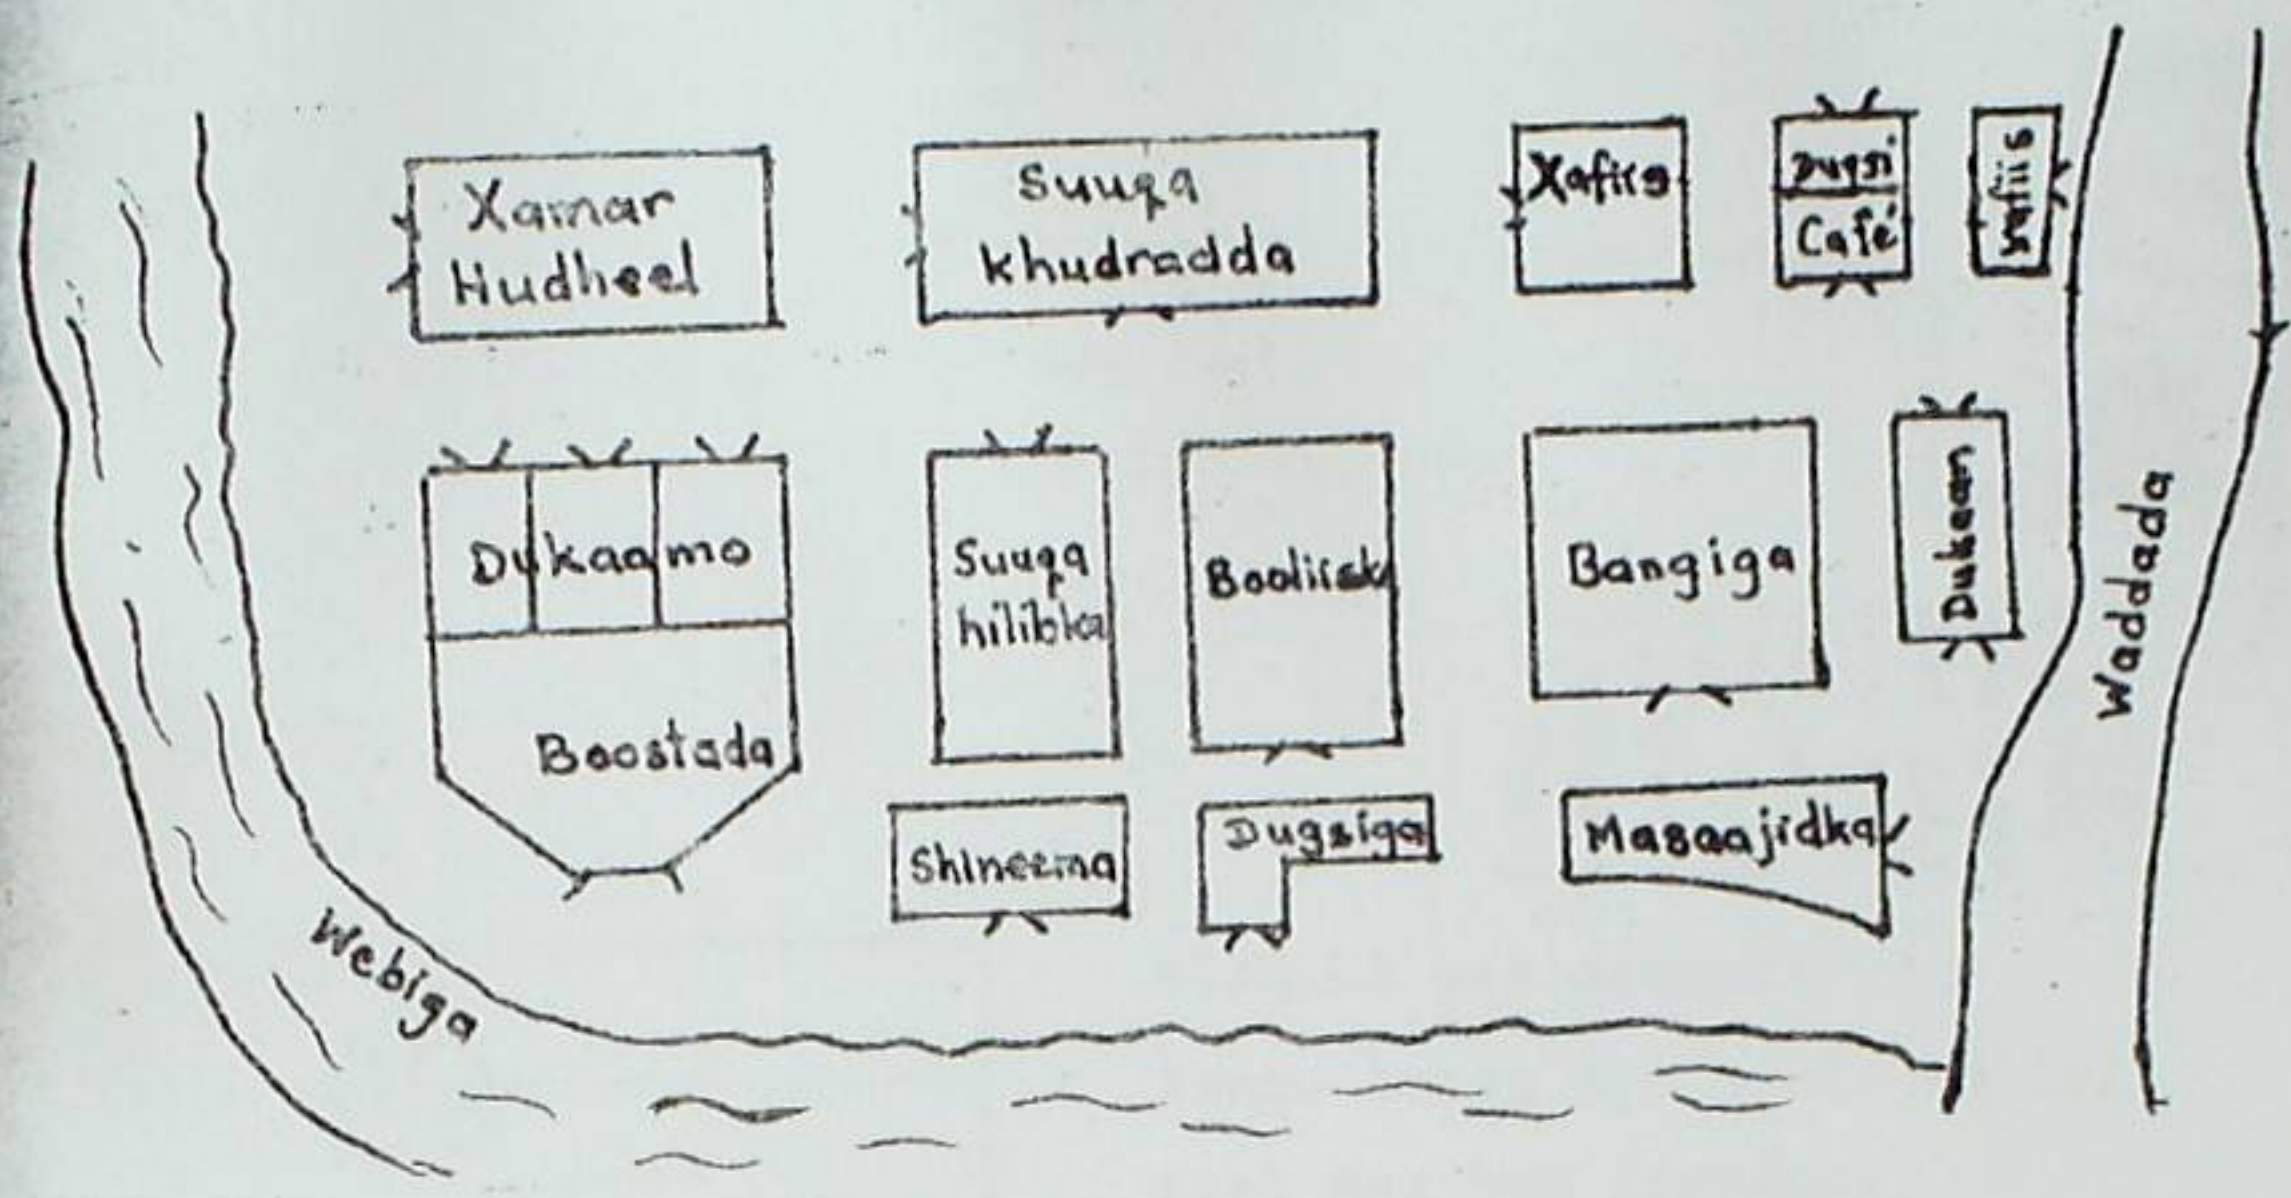 Xamar
Hudheel
Suuqa
khudradda
Xafiis
Dugsi
Café
Xafiis
Dukaamo
Boostada
Suuqa
hilibka
Booliisk
Bangiga
Dukaan
Waddada
Shineema
Dugsiga
Masaajidka
Webiga